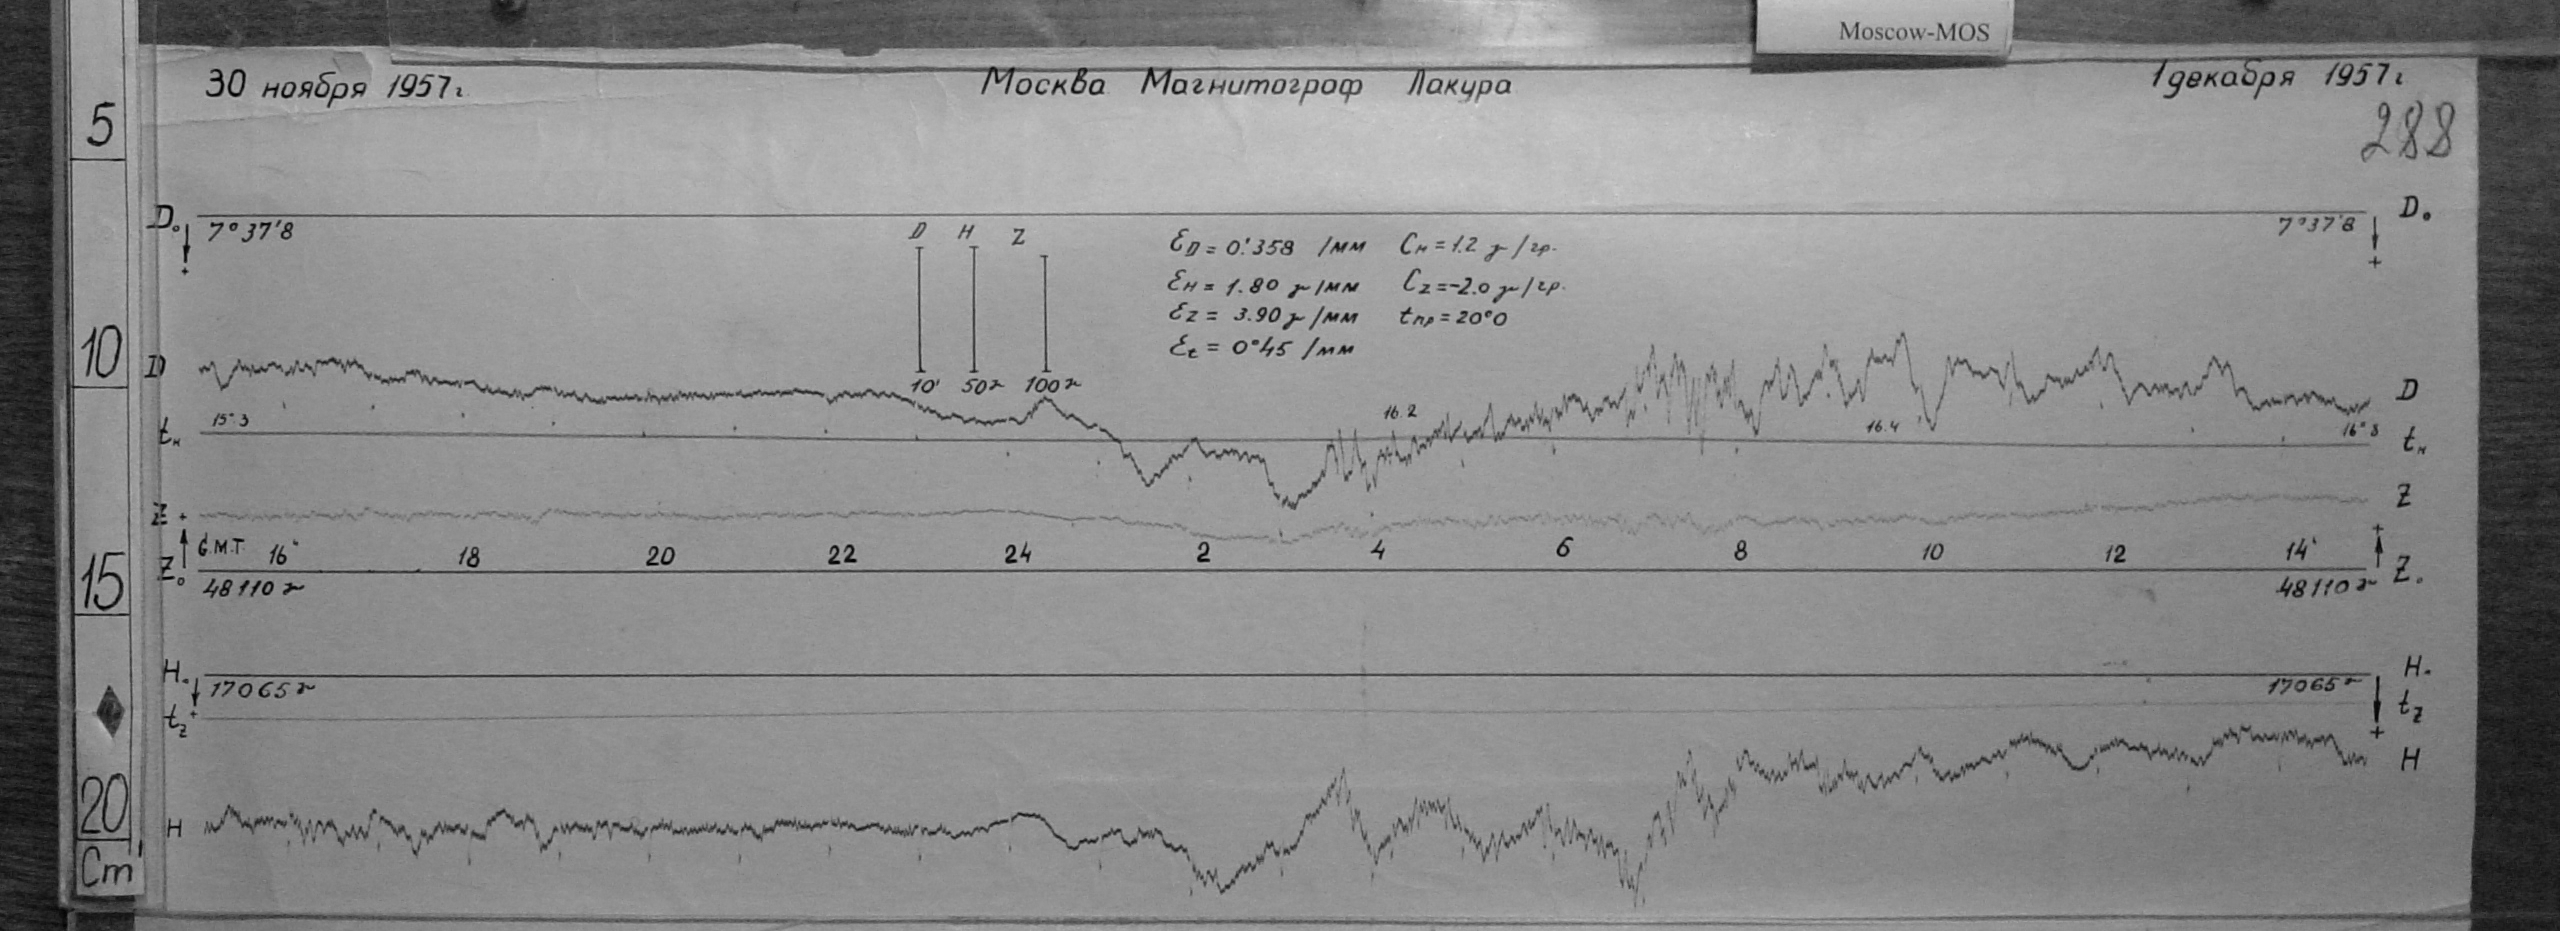 Moscow-MOS
30 ноября 1957г.
Москва Магнитограф Лакура
1 декабря 1957г
288
5
10
15
20
Cm
D₀ 7°37'8
7°37'8 D₀
+
+
D H Z
10' 50γ 100γ
ƐD = 0.'358 /мм Cн = 1.2 γ/гр.
Ɛн = 1.80 γ/мм Cz = -2.0 γ/гр.
Ɛz = 3.90 γ/мм tпр = 20°0
Ɛt = 0°45 /мм
D
D
tн 15°3
16.2
16.4
16°8
tн
Z +
Z
G.M.T. 16ʰ 18 20 22 24 2 4 6 8 10 12 14ʰ
+
Z₀ 48110γ
48110γ Z₀
H₀ 17065γ
17065γ H₀
tz +
tz
+
H
H